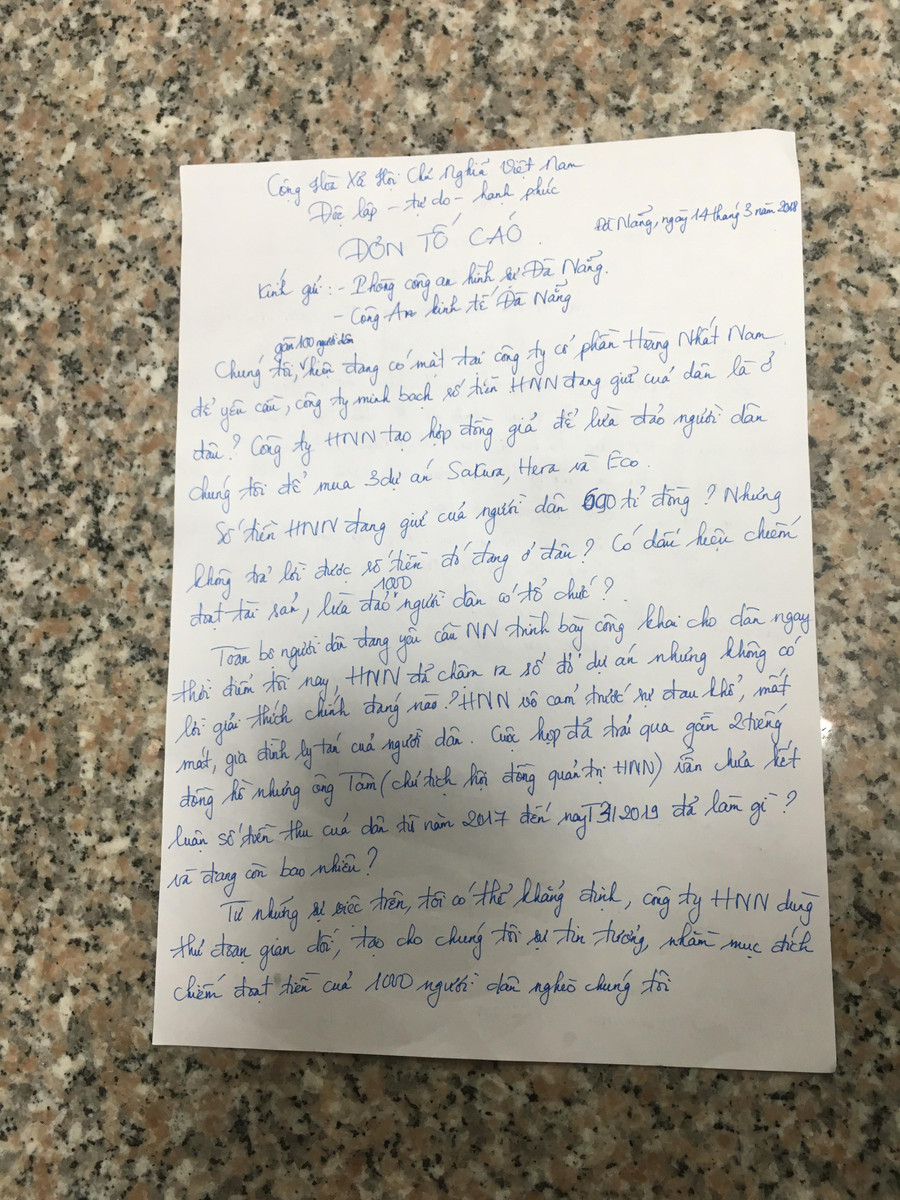 Cộng Hòa Xã Hội Chủ Nghĩa Việt Nam
Độc lập - tự do - hạnh phúc
Đà Nẵng, ngày 14 tháng 3 năm 2018
ĐƠN TỐ CÁO
Kính gửi: - Phòng công an hình sự Đà Nẵng.
- Công An kinh tế Đà Nẵng
gần 100 người dân
Chúng tôi, hiện đang có mặt tại công ty cổ phần Hoàng Nhất Nam
để yêu cầu, công ty minh bạch số tiền HNN đang giữ của dân là ở
đâu? Công ty HNN tạo hợp đồng giả để lừa đảo người dân
chúng tôi để mua 3 dự án Sakura, Hera và Eco.
Số tiền HNN đang giữ của người dân 600 tỉ đồng? Nhưng
không trả lời được số tiền đó đang ở đâu? Có dấu hiệu chiếm
1000
đoạt tài sản, lừa đảo người dân có tổ chức?
Toàn bộ người dân đang yêu cầu NN trình bày công khai cho dân ngay
thời điểm tối nay, HNN đã chậm ra sổ đỏ dự án nhưng không có
lời giải thích chính đáng nào? HNN vô cảm trước sự đau khổ, mất
mát, gia đình ly tán của người dân. Cuộc họp đã trải qua gần 2 tiếng
đồng hồ nhưng ông Tâm (chủ tịch hội đồng quản trị HNN) vẫn chưa kết
luận số tiền thu của dân từ năm 2017 đến nay T3/2019 đã làm gì?
và đang còn bao nhiêu?
Từ những sự việc trên, tôi có thể khẳng định, công ty HNN dùng
thủ đoạn gian dối, tạo cho chúng tôi sự tin tưởng, nhằm mục đích
chiếm đoạt tiền của 1000 người dân nghèo chúng tôi